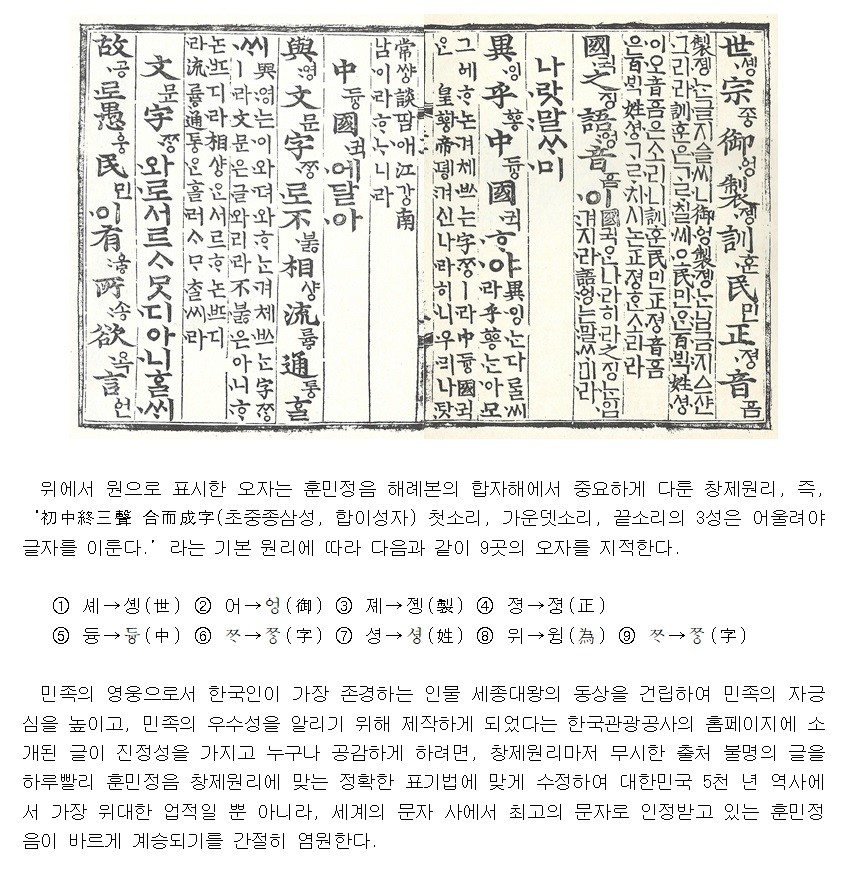 世솅宗종御엉製졩訓훈民민正졍音ᅙᅳᆷ
製졩는글지ᅀᅳᆯ씨니御엉製졩는님금지ᅀᆞ샨
그리라訓훈은ᄀᆞᄅᆞ칠씨오民민ᄋᆞᆫ百ᄇᆡᆨ姓셩
이오音ᅙᅳᆷ은소리니訓훈民민正졍音ᅙᅳᆷ
은百ᄇᆡᆨ姓셩ᄀᆞᄅᆞ치시논正졍ᄒᆞᆫ소리라
國귁之징語ᅌᅥᆼ音ᅙᅳᆷ이 國귁ᄋᆞᆫ나라히라之징ᄂᆞᆫ입
겨지라語ᅌᅥᆼ는말ᄊᆞ미라
나랏말ᄊᆞ미
異잉乎ᅘᅩᆼ中듕國귁ᄒᆞ야 異잉ᄂᆞᆫ다ᄅᆞᆯ씨
라乎ᅘᅩᆼᄂᆞᆫ아모
그ᅌᅦᄒᆞ논겨체ᄡᅳ는字ᄍᆞᆼㅣ라中듕國귁
ᄋᆞᆫ皇황帝뎽겨신나라히니우리나랏
常썅談땀애江강南
남이라ᄒᆞᄂᆞ니라
中듕國귁에달아
與영文문字ᄍᆞᆼ로不붏相샹流륳通통ᄒᆞᆯ
씨與영는이와뎌와ᄒᆞ는겨체ᄡᅳ는字ᄍᆞᆼ
ㅣ라文문은글와리라不붏은아니ᄒᆞ
논ᄠᅳ디라相샹ᄋᆞᆫ서르ᄒᆞ논ᄠᅳ디
라流륳通통ᄋᆞᆫ흘러ᄉᆞᄆᆞᄎᆞᆯ씨라
文문字ᄍᆞᆼ와로서르ᄉᆞᄆᆞᆺ디아니ᄒᆞᆯᄊᆡ
故공로愚웅民민이有ᅌᅮᇢ所송欲욕言언
위에서 원으로 표시한 오자는 훈민정음 해례본의 합자해에서 중요하게 다룬 창제원리, 즉,
‘初中終三聲 合而成字(초중종삼성, 합이성자) 첫소리, 가운뎃소리, 끝소리의 3성은 어울려야
글자를 이룬다.’ 라는 기본 원리에 따라 다음과 같이 9곳의 오자를 지적한다.
① 셰→솅(世) ② 어→엉(御) ③ 졔→졩(製) ④ 졍→졍(正)
⑤ 듕→듕(中) ⑥ ᄍᆞ→ᄍᆞᆼ(字) ⑦ 셩→셩(姓) ⑧ 위→윙(為) ⑨ ᄍᆞ→ᄍᆞᆼ(字)
민족의 영웅으로서 한국인이 가장 존경하는 인물 세종대왕의 동상을 건립하여 민족의 자긍
심을 높이고, 민족의 우수성을 알리기 위해 제작하게 되었다는 한국관광공사의 홈페이지에 소
개된 글이 진정성을 가지고 누구나 공감하게 하려면, 창제원리마저 무시한 출처 불명의 글을
하루빨리 훈민정음 창제원리에 맞는 정확한 표기법에 맞게 수정하여 대한민국 5천 년 역사에
서 가장 위대한 업적일 뿐 아니라, 세계의 문자 사에서 최고의 문자로 인정받고 있는 훈민정
음이 바르게 계승되기를 간절히 염원한다.